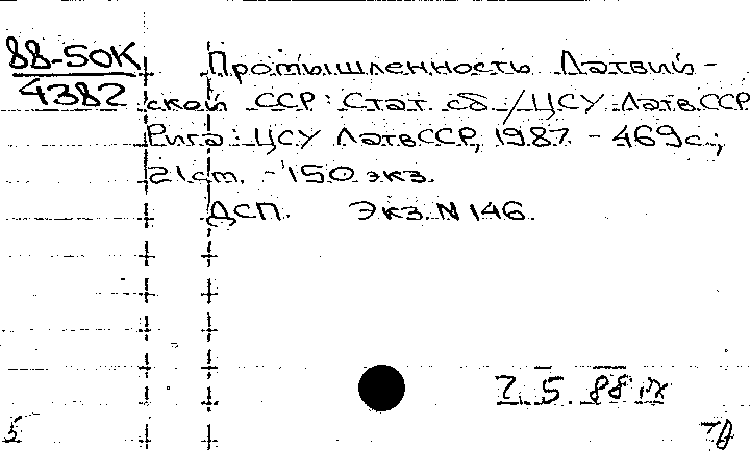 88-50К
4382
Промышленность Латвий-
ской ССР: Стат. сб. / ЦСУ ЛатвССР.
Рига: ЦСУ ЛатвССР, 1987. - 469с.;
21см. - 150 экз.
ДСП. Экз. N 146.
2. 5. 88
5